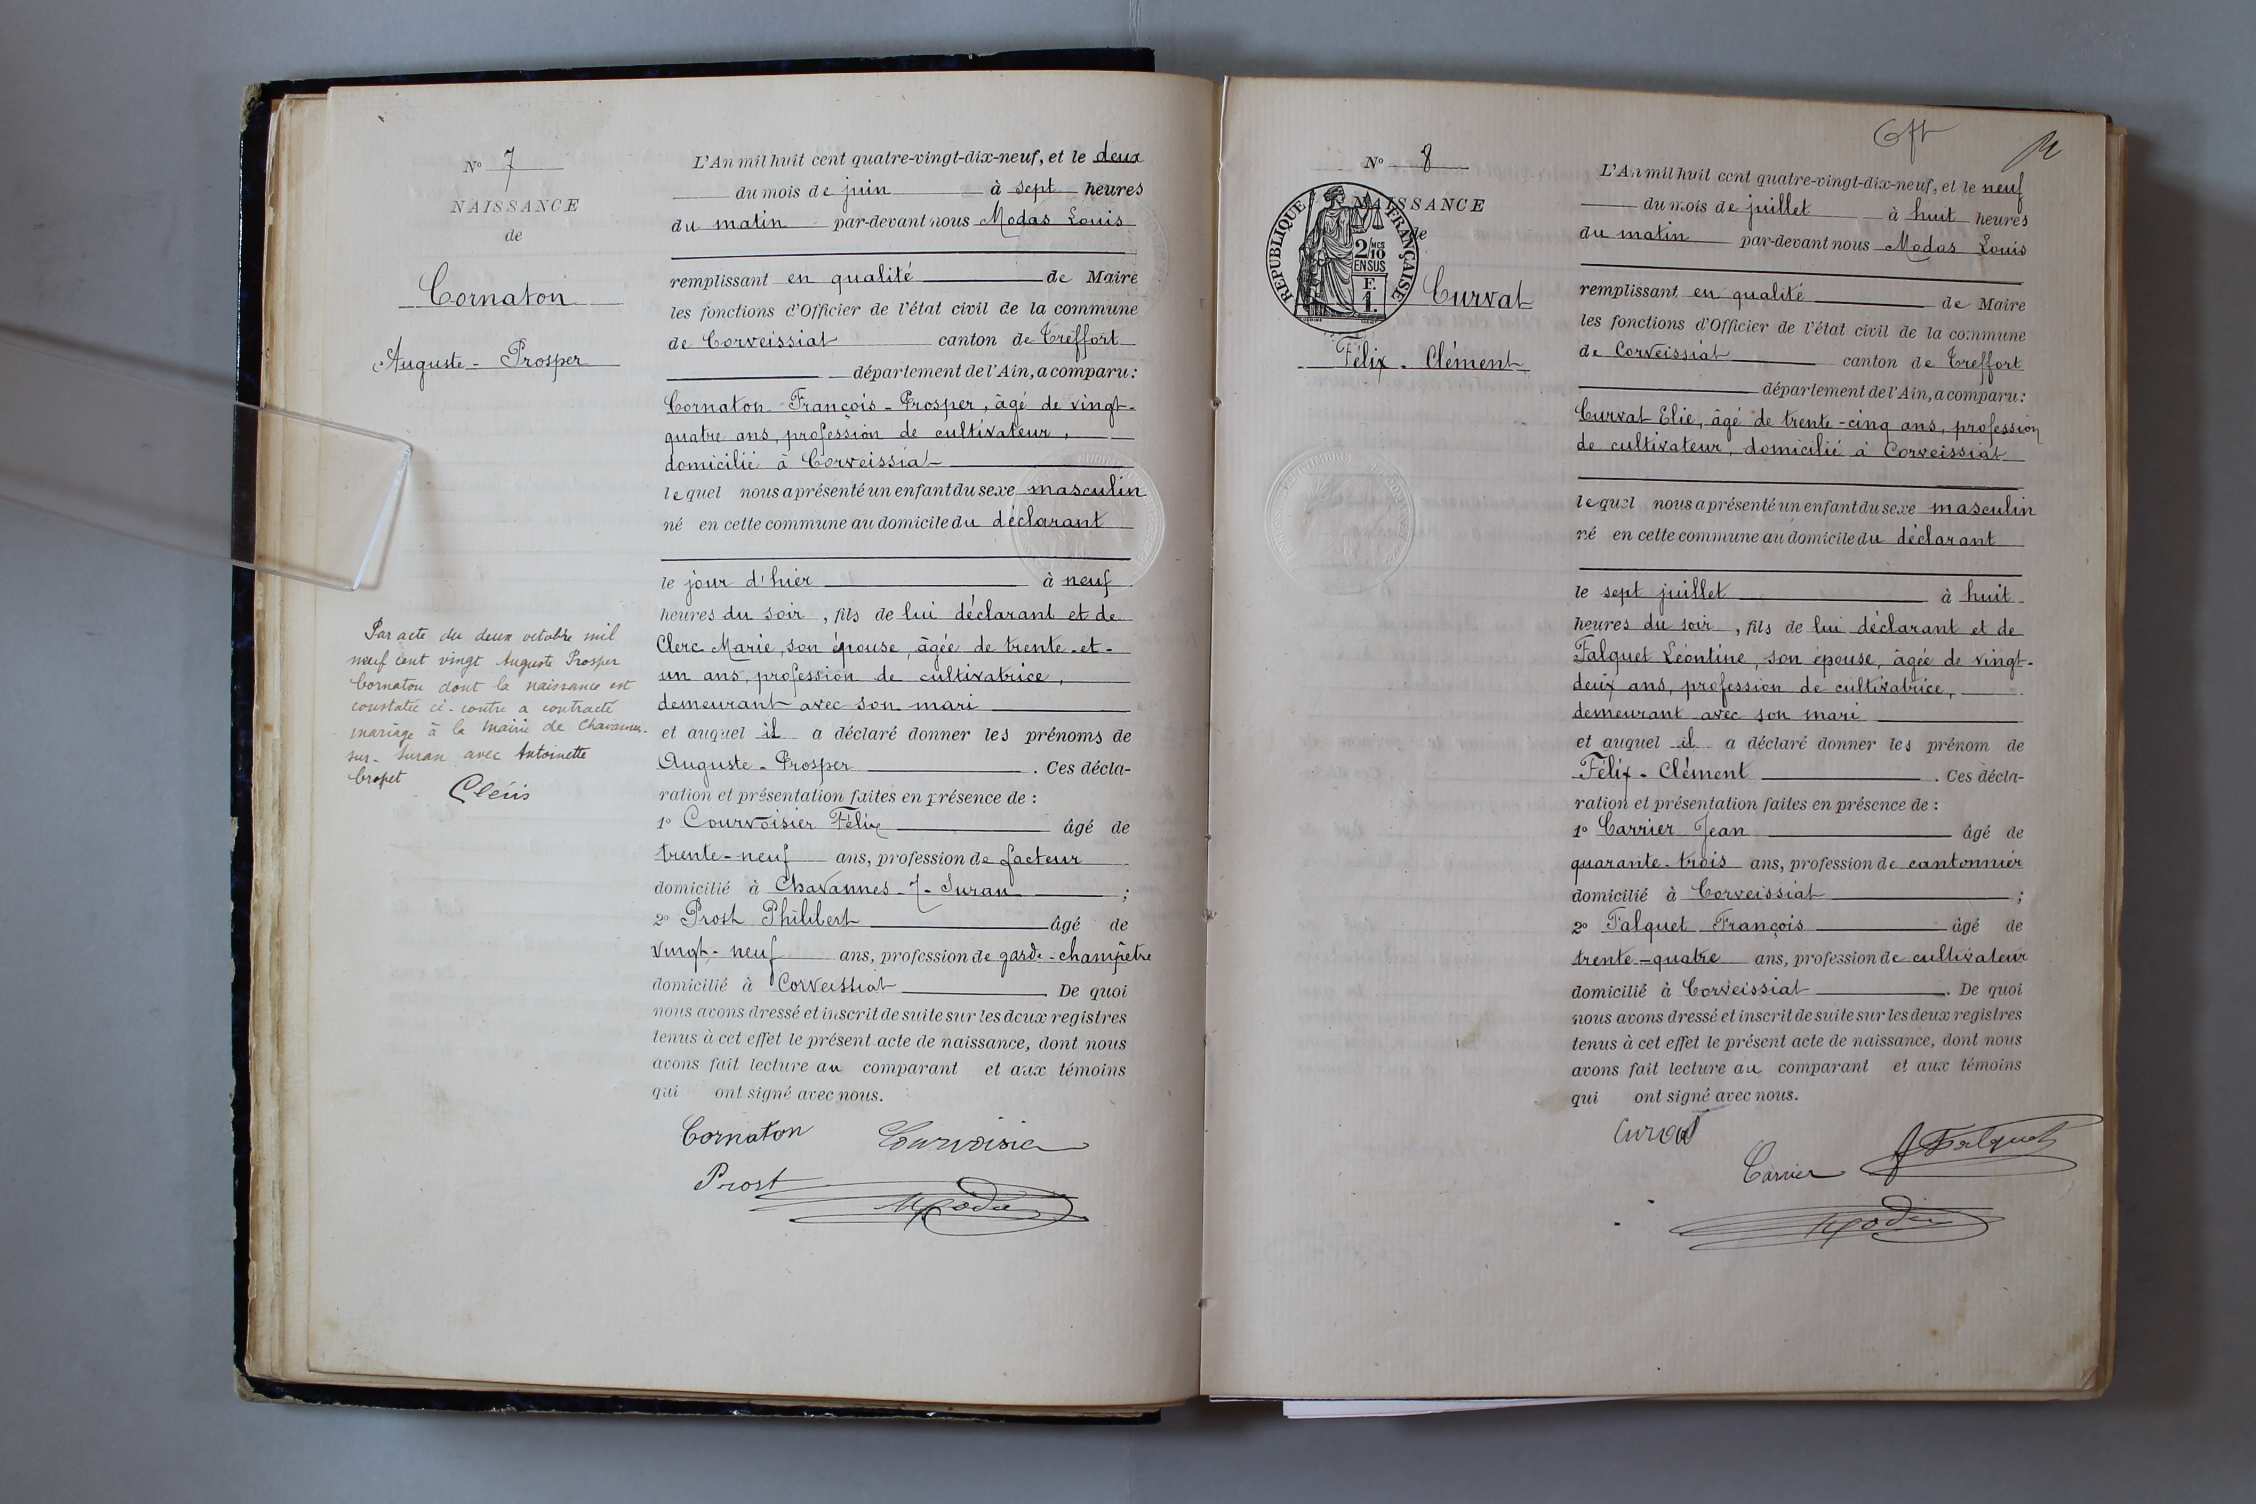 N° 7
NAISSANCE
de
Cornaton
Auguste - Prosper
Par acte du deux octobre mil
neuf cent vingt Auguste Prosper
Cornaton dont la naissance est
constatée ci-contre a contracté
mariage à la Mairie de Chavannes-
sur-Suran avec Antoinette
Cropet
L'An mil huit cent quatre-vingt-dix-neuf, et le deux
du mois de juin à sept heures
du matin par-devant nous Modas Louis
remplissant en qualité de Maire
les fonctions d'Officier de l'état civil de la commune
de Corveissiat canton de Treffort
département de l'Ain, a comparu :
Cornaton François - Prosper, âgé de vingt-
quatre ans, profession de cultivateur,
domicilié à Corveissiat
lequel nous a présenté un enfant du sexe masculin
né en cette commune au domicile du déclarant
le jour d'hier à neuf
heures du soir, fils de lui déclarant et de
Clerc Marie, son épouse, âgée de trente-et-
un ans, profession de cultivatrice,
demeurant avec son mari
et auquel il a déclaré donner les prénoms de
Auguste - Prosper. Ces décla-
ration et présentation faites en présence de :
1° Courvoisier Félix âgé de
trente-neuf ans, profession de facteur
domicilié à Chavannes-s-Suran ;
2° Prost Philibert âgé de
vingt-neuf ans, profession de garde-champêtre
domicilié à Corveissiat. De quoi
nous avons dressé et inscrit de suite sur les deux registres
tenus à cet effet le présent acte de naissance, dont nous
avons fait lecture au comparant et aux témoins
qui ont signé avec nous.
Cornaton Courvoisier
Prost
N° 8
NAISSANCE
de
RÉPUBLIQUE FRANÇAISE
2/10 MES
EN SUS
F.
1.
Curvat
Félix - Clément
L'An mil huit cent quatre-vingt-dix-neuf, et le neuf
du mois de juillet à huit heures
du matin par-devant nous Modas Louis
remplissant en qualité de Maire
les fonctions d'Officier de l'état civil de la commune
de Corveissiat canton de Treffort
département de l'Ain, a comparu :
Curvat Elie, âgé de trente-cinq ans, profession
de cultivateur, domicilié à Corveissiat
lequel nous a présenté un enfant du sexe masculin
né en cette commune au domicile du déclarant
le sept juillet à huit
heures du soir, fils de lui déclarant et de
Falquet Léontine, son épouse, âgée de vingt-
deux ans, profession de cultivatrice,
demeurant avec son mari
et auquel il a déclaré donner les prénom de
Félix - Clément. Ces décla-
ration et présentation faites en présence de :
1° Carrier Jean âgé de
quarante-trois ans, profession de cantonnier
domicilié à Corveissiat ;
2° Falquet François âgé de
trente-quatre ans, profession de cultivateur
domicilié à Corveissiat. De quoi
nous avons dressé et inscrit de suite sur les deux registres
tenus à cet effet le présent acte de naissance, dont nous
avons fait lecture au comparant et aux témoins
qui ont signé avec nous.
Curvat
Carrier Falquet